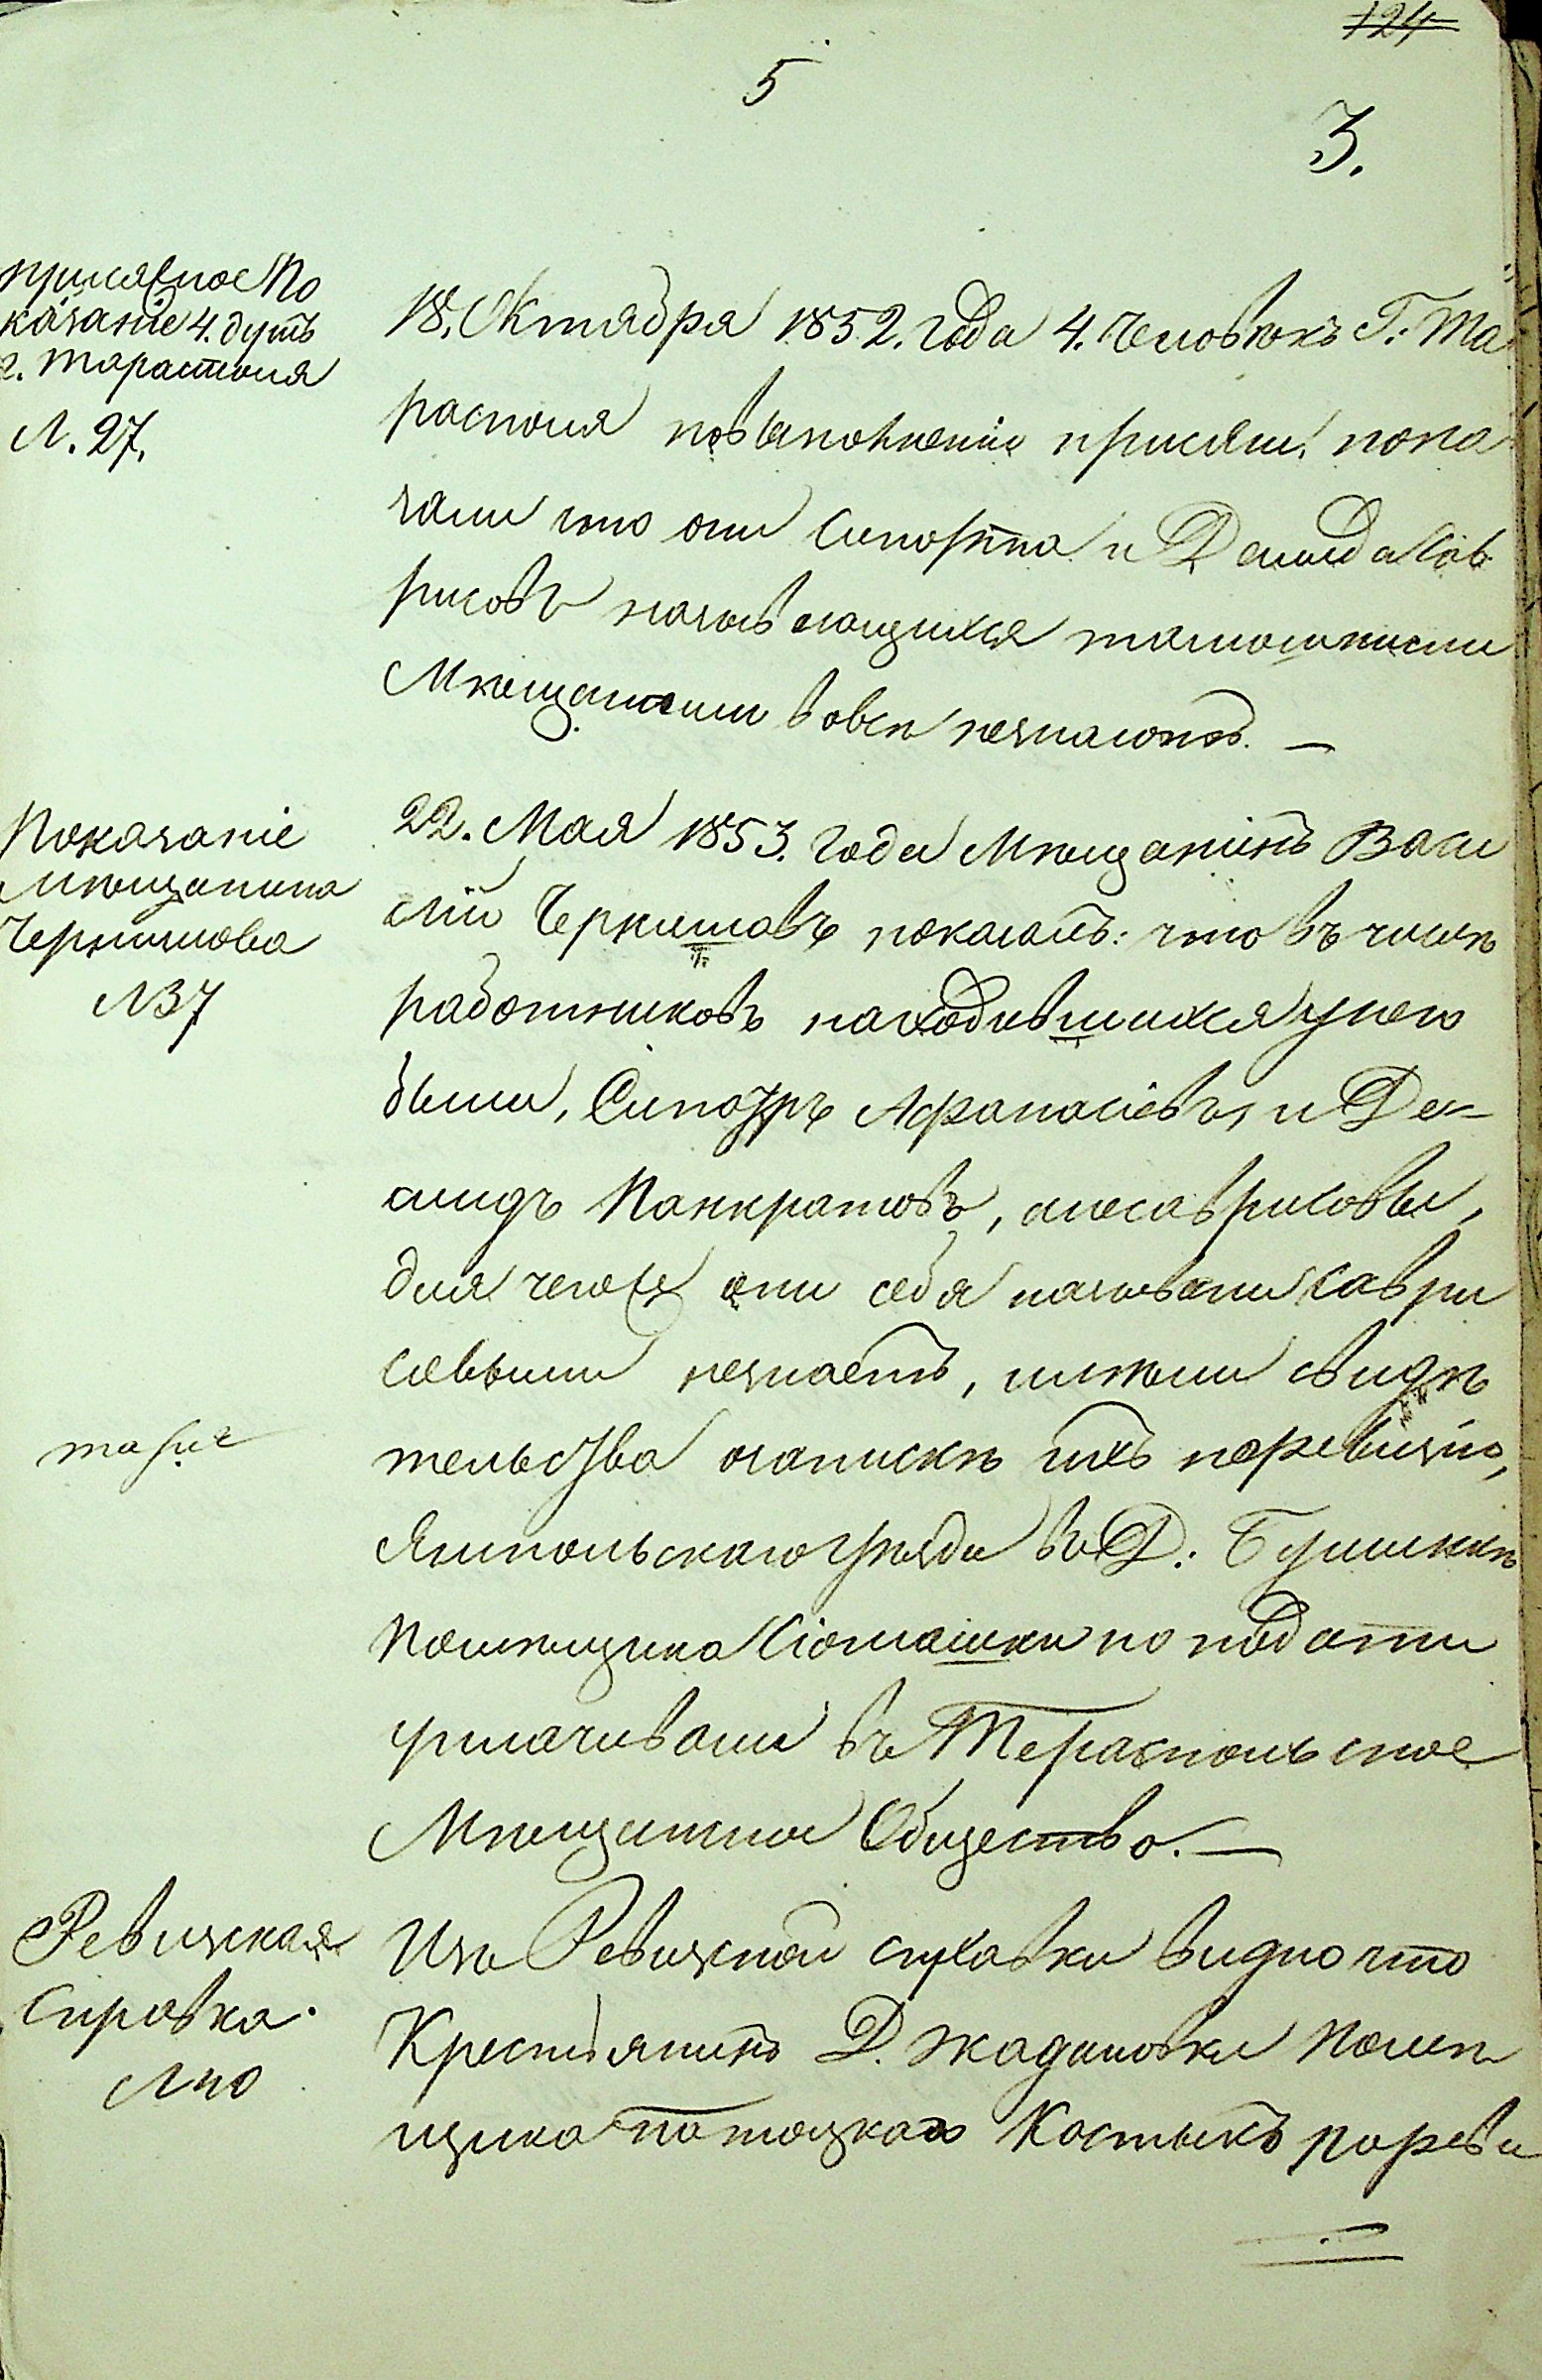 124
5
3.
присяжное По
казаніе 4. душъ
г. Тарасполя
Л. 27.
18. Октября 1852. года 4. человѣкъ Г: Та
располя повыполненіи присяги, пока
зали что они Сипорта и Демида Сав
рисовъ называющихся тамошними
Мѣщанами вовсе незнаютъ. —
Показаніе
Мѣщанина
Чернишова
Л 37
22. Мая 1853. года Мѣщанинъ Васи
лій Чернишовъ показалъ: что въ числѣ
работниковъ находившихся унего
были, Сипотръ Афанасіевъ, и Де-
мидъ Панкратовъ, анесаврисовы,
для чегожъ они себя называли Саври
совыми незнаетъ, имѣли свидѣ
тельства озапискѣ ихъ поревизіи,
таже
Ямпольскаго уѣзда въ Д: Бушинкѣ
Помѣщика Сіомашки но подати
уплачивали въ Тераспольское
Мѣщанское Общество. —
Ревизская
Справка.
Л 40
Изъ Ревизской справки видно что
Крестьянинъ Д. Жадановки Помѣ
щика Потоцкаго Костынъ пореви